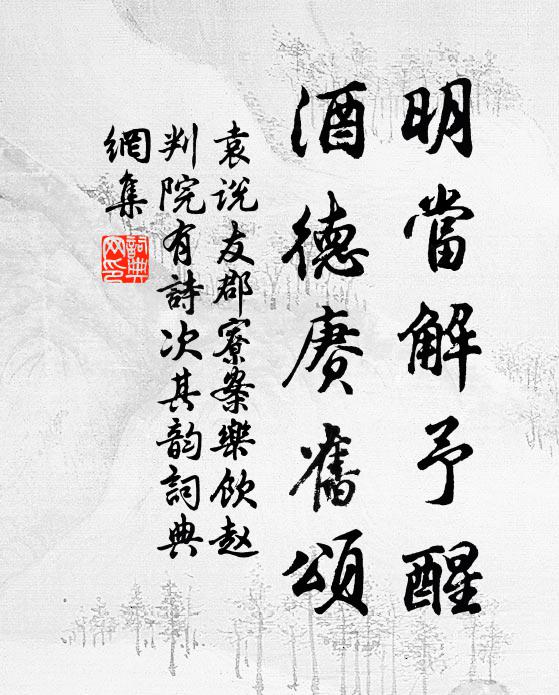 明當解予醒
酒德賡舊頌
袁说友郡寮案樂飲赵
判院有詩次其韵詞典
網集
詞典
网印